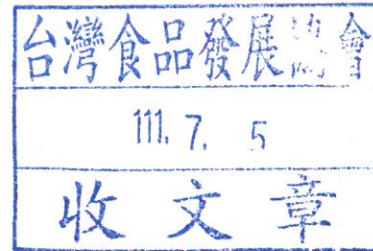 台灣食品發展協會
111. 7. 5
收文章